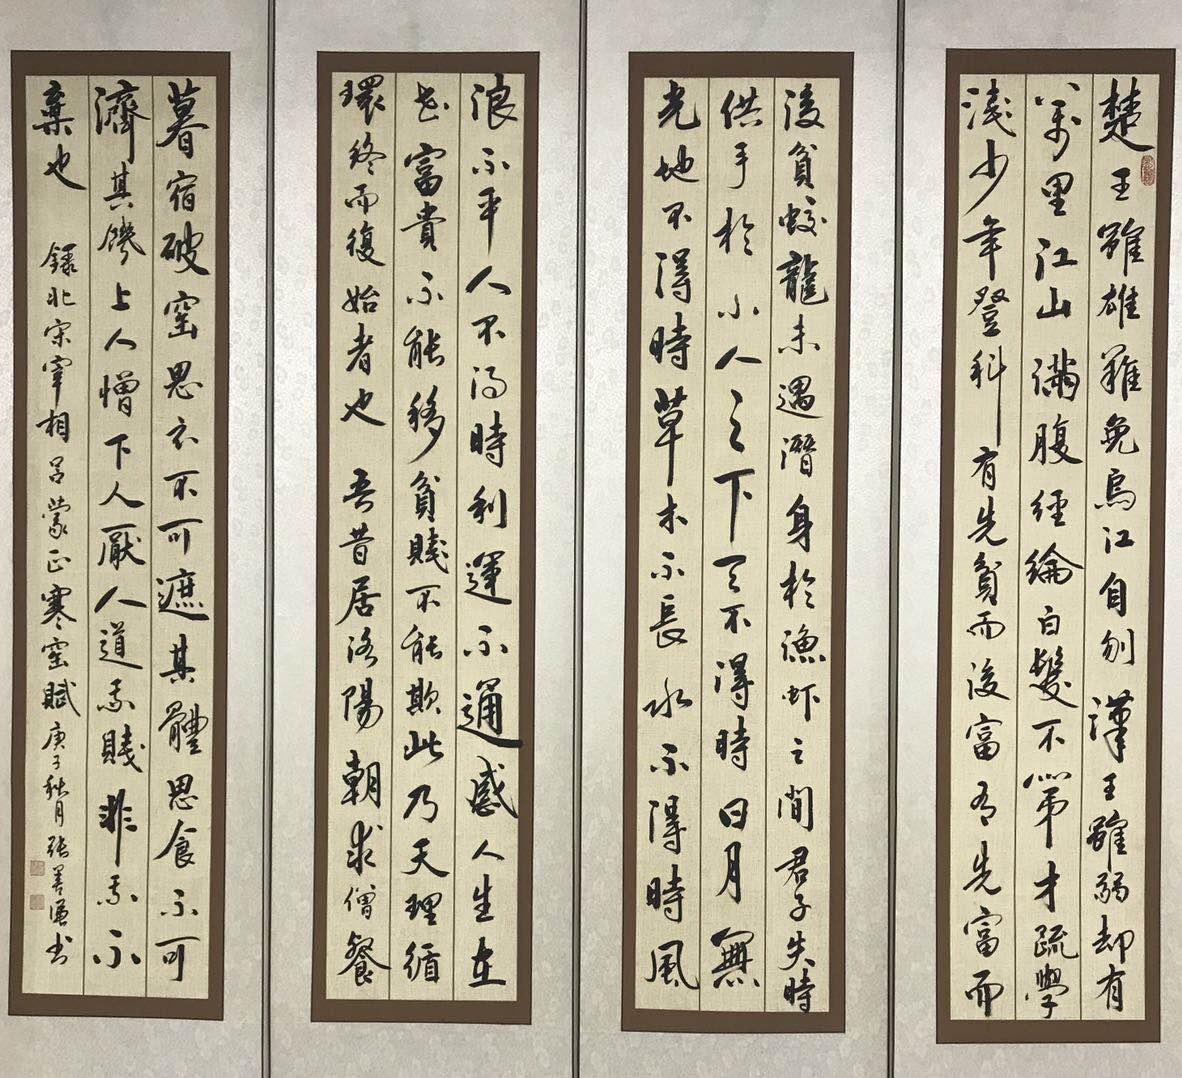 楚王雖雄難免烏江自刎漢王雖弱却有
萬里江山滿腹經綸白髮不第才疏學
淺少年登科有先貧而後富有先富而
後貧蛟龍未遇潛身於漁虾之間君子失時
供手於小人之下天不得時日月無
光地不得時草木不長水不得時風
浪不平人不得時利運不通感人生在
世富貴不能移貧賤不能欺此乃天理循
環終而復始者也 吾昔居洛陽朝求僧餐
暮宿破窑思衣不可遮其體思食不可
濟其饑上人憎下人厭人道我賤非我不
棄也 録北宋宰相呂蒙正寒窑賦庚子秋月張善謹书